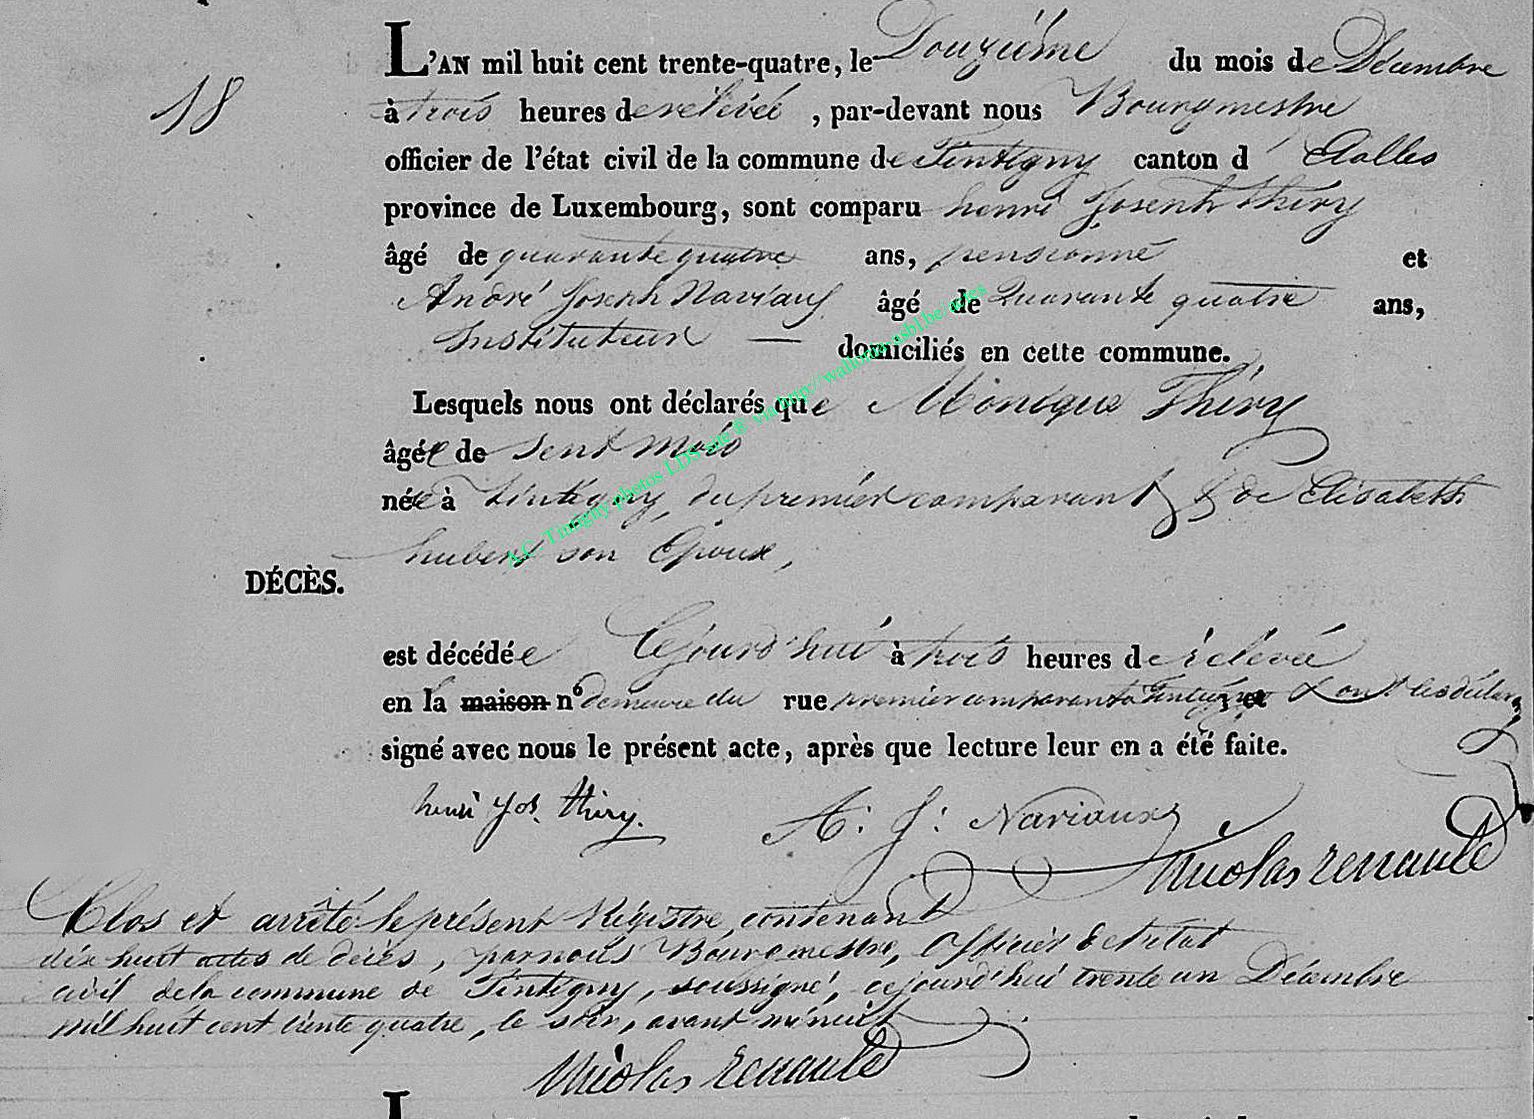 L'AN mil huit cent trente-quatre, le Douzième du mois de Décembre
18
à trois heures de rélevée, par-devant nous Bourgmestre
officier de l'état civil de la commune de Tintigny canton d' Etalles
province de Luxembourg, sont comparu henri Joseph Thiry
âgé de quarante quatre ans, pensionné et
André Joseph Naviaux âgé de Quarante quatre ans,
Instituteur — domiciliés en cette commune.
Lesquels nous ont déclarés que Monique Thiry
âgée de sept mois
née à tintigny, du premier comparant & de Elisabeth
hubert son Epoux,
DÉCÈS.
est décédée Cejourd'hui à trois heures de rélevée
en la maison n° demeure du rue premier comparant à Tintigny et & ont les déclar
signé avec nous le présent acte, après que lecture leur en a été faite.
henri Jos. thiry. A: J: Naviaux
Nicolas renauld
Clos et arrêté le présent Régistre, contenant
dix huit actes de décès, par nous Bourgmestre, Officier de l'état
civil de la commune de Tintigny, soussigné, cejourd'hui trente un Décembre
mil huit cent trente quatre, le soir, avant minuit
Nicolas renauld
L
A.C. Tintigny photos LDS site ® via http://wallonia-asbl.be/actes